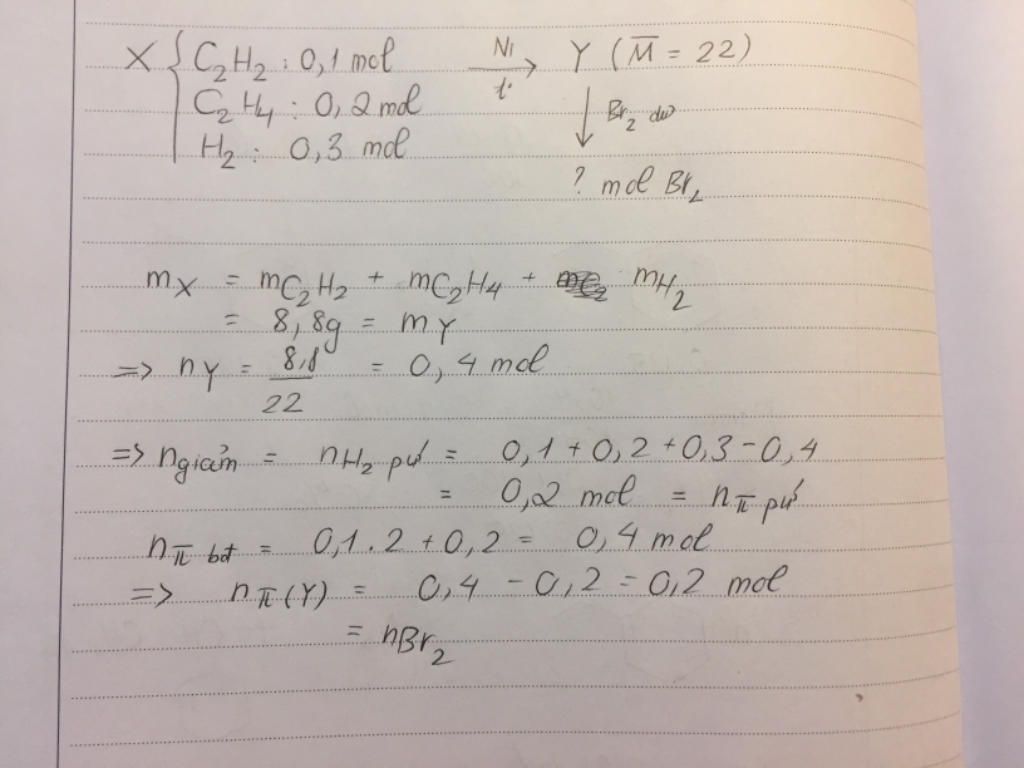 X { C₂H₂ : 0,1 mol —Ni, t°→ Y (M̅ = 22)
C₂H₄ : 0,2 mol ↓ Br₂ dư
H₂ : 0,3 mol
? mol Br₂
mX = mC₂H₂ + mC₂H₄ + mH₂
= 8,8g = mY
=> nY = 8,8/22 = 0,4 mol
=> n giảm = nH₂ pứ = 0,1 + 0,2 + 0,3 - 0,4
= 0,2 mol = nπ pứ
nπ bđ = 0,1.2 + 0,2 = 0,4 mol
=> nπ(Y) = 0,4 - 0,2 = 0,2 mol
= nBr₂